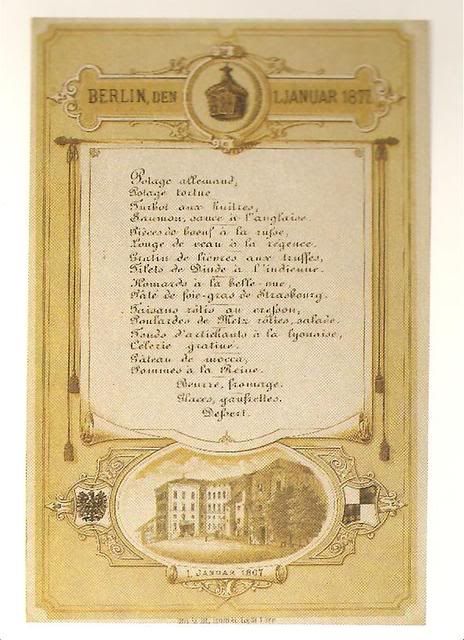 BERLIN, DEN 1. JANUAR 1877.
Potage allemand,
Potage tortue
Turbot aux huîtres,
Saumon, sauce à l'anglaise.
Pièces de boeuf à la russe,
Longe de veau à la régence.
Gratin de lièvres aux truffes,
Filets de Dinde à l'indienne.
Homards à la belle-vue,
Pâté de foie-gras de Strasbourg.
Faisans rôtis au cresson,
Poulardes de Metz rôties, salade.
Fonds d'artichauts à la lyonaise,
Célerie gratiné.
Gâteau de mocca,
Pommes à la Reine.
Beurre, fromage.
Glaces, gaufrettes.
Dessert.
1. JANUAR 1807